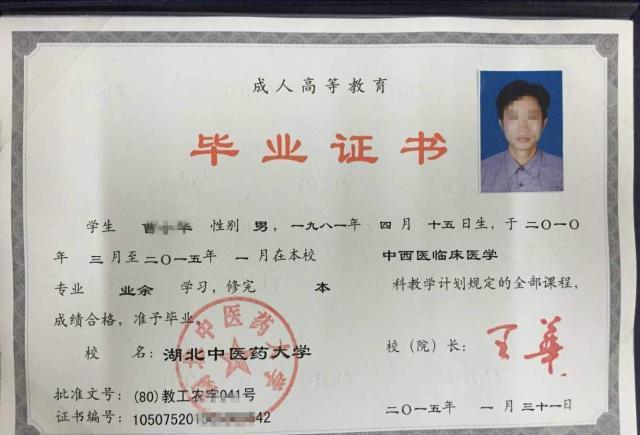 成人高等教育
毕业证书
学生 性别 男，一九八一年 四 月 十五日生，于二〇一〇
年 三 月至二〇一五年 一 月在本校 中西医临床医学
专业 业余 学习，修完 本 科教学计划规定的全部课程，
成绩合格，准予毕业。
校 名：湖北中医药大学 校（院）长：王華
湖北中医药大学
批准文号：(80)教工农字041号
证书编号：10507520150 542 二〇一五年 一 月 三十一日